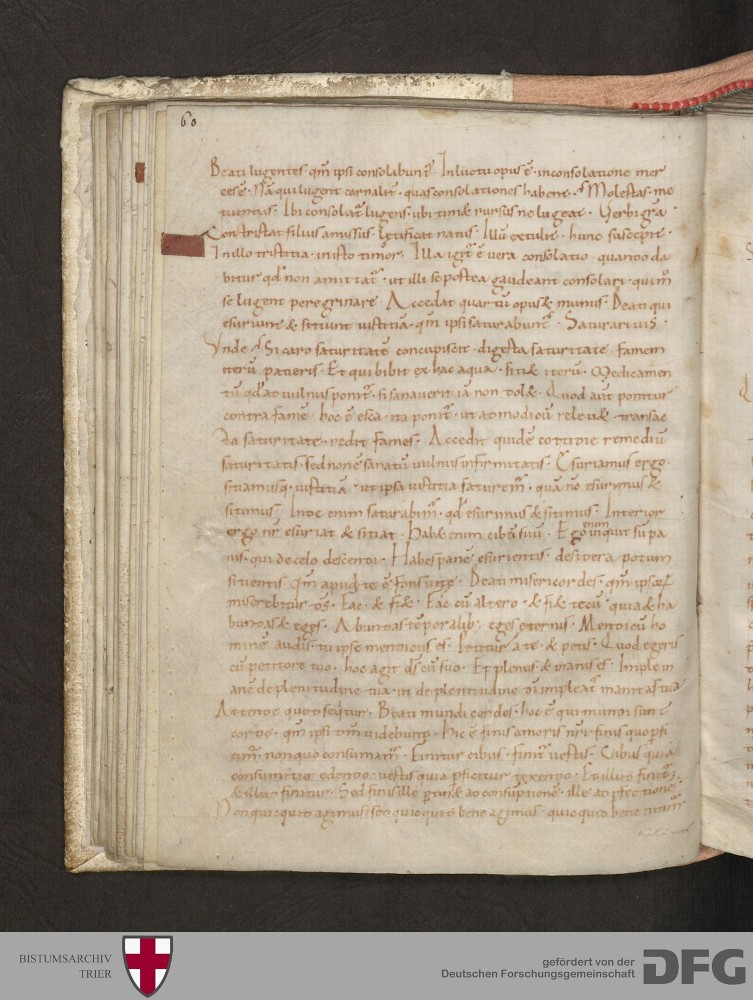 60
Beati lugentes · qm̄ ipsi consolabunt̄ · In luctu opus ē · in consolatione mer
ces ē · Nā qui lugent carnalit̄ · quas consolationes habent · Molestas · me
tuendas · Ibi consolat̄ lugens · ubi timet rursus ne lugeat · Verbi grā ·
Contristat filius amissus · letificat natus · Illū extulit · hunc suscepit ·
In illo tristitia · in isto timor · Illa igit̄ ē vera consolatio · quando da
bitur qd̄ non amittat̄ · ut illi se postea gaudeant consolari · qui nunc
se lugent peregrinare · Accedat quartū opus & munus · Beati qui
esuriunt & sitiunt iustitiā · qm̄ ipsi saturabunt̄ · Saturari vis ·
Unde · Si caro saturitatē concupiscit · digesta saturitate famem
iterū patieris · Et qui bibit ex hac aqua · siti& iterū · Medicamen
tū qd̄ ad vulnus ponit̄ · si sanaverit iā non dol& · Quod aut̄ ponitur
contra famē hoc ē esca · ita ponit̄ · ut ad modicū relev& · transac
ta saturitate · redit fames · Accedit quidē cottidie remediū
saturitatis · sed non ē sanatū vulnus infirmitatis · Esuriamus ergo ·
sitiamusq· iustitiā · ut ipsa iustitia saturem̄ · quā n̄o esurimus &
sitimus · Inde enim saturabim̄ · qd̄ esurimus & sitimus · Interior
ergo nr̄ esuriat & sitiat · Hab& enim cibū suū · Ego enim inquit sū pa
nis · qui de celo descendi · Habes panē esurientis · desidera potum
sitientis · Qm̄ apud te ē fons uitę · Beati misericordes · qm̄ ipsoꝝ
miserebitur ds̄ · Fac · & fi& · Fac cū altero · & fi& tecū · quia & ha
bundas & eges · Abundas tēporalib; · eges ęternis · Mendicū ho
minē audis · tu ipse mendicus es · Petitur a te · & petis · Quod egeris
cū petitore tuo · hoc agit ds̄ cū suo · Et plenus & inanis es · Imple in
anē de plenitudine tua · ut de plenitudine di impleat̄ inanitas tua
Attende quod seq̄tur · Beati mundi cordes · hoc ē qui mundi sunt
corde · qm̄ ipsi dm̄ videbunt · Hic ē finis amoris nr̄i · finis quo ꝑfi
cim̄ · non quo consumam̄ · Finitur cibus · finit̄ vestis · Cibus quia
consumitur edendo · vestis quia ꝑficitur texendo · Et illud finit̄ ·
& illud finitur · Sed finis ille ꝑtin& ad consūptionē · ille ad ꝑfectionē ·
Non quicquid agimus · seo quicquid bene agimus · quicquid bene
BISTUMSARCHIV
TRIER
gefördert von der
Deutschen Forschungsgemeinschaft
DFG